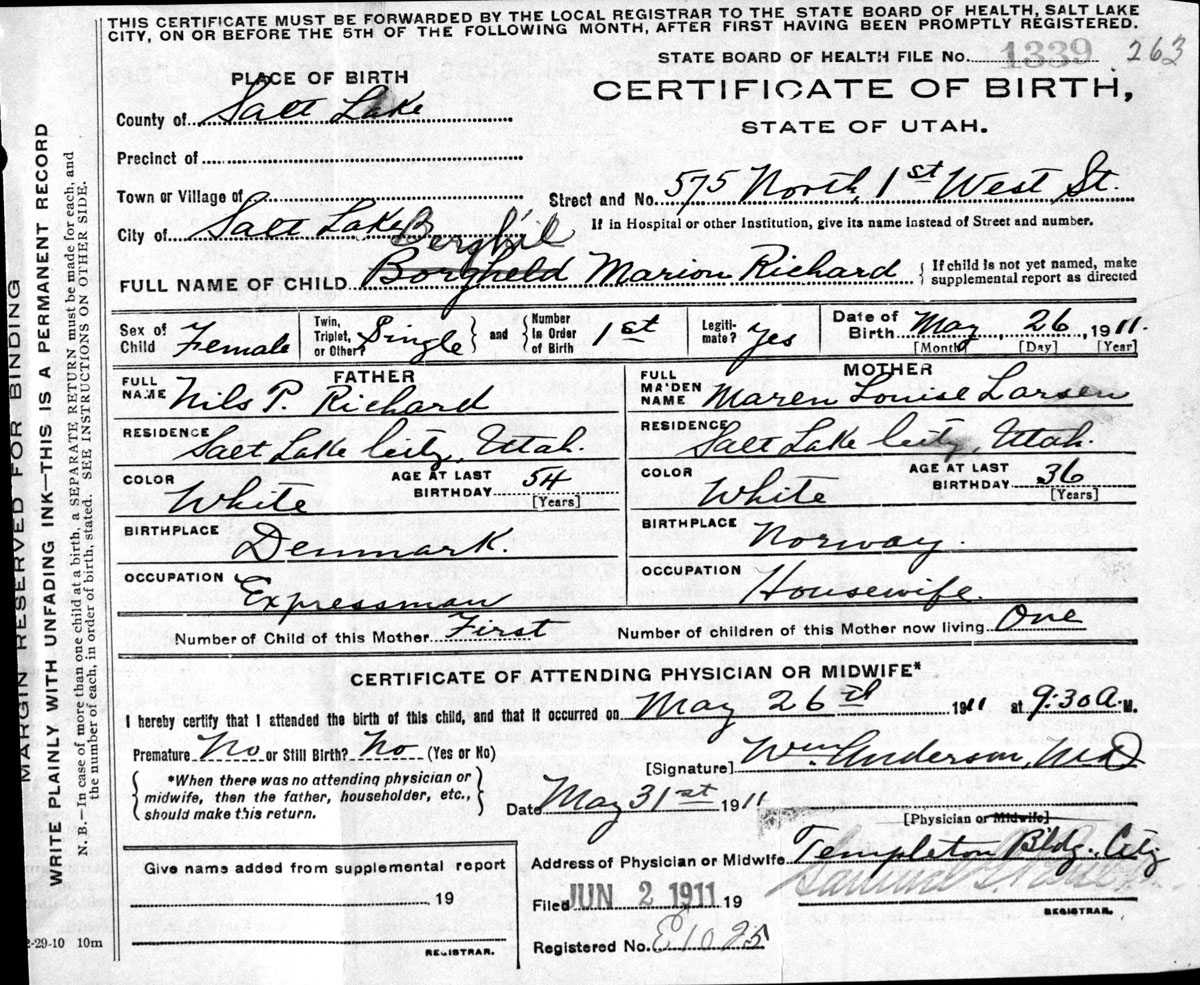 THIS CERTIFICATE MUST BE FORWARDED BY THE LOCAL REGISTRAR TO THE STATE BOARD OF HEALTH, SALT LAKE
CITY, ON OR BEFORE THE 5TH OF THE FOLLOWING MONTH, AFTER FIRST HAVING BEEN PROMPTLY REGISTERED.
STATE BOARD OF HEALTH FILE No. 1339 263
PLACE OF BIRTH
CERTIFICATE OF BIRTH,
STATE OF UTAH.
County of Salt Lake
Precinct of
Town or Village of
Street and No. 575 North, 1st West St.
City of Salt Lake
If in Hospital or other Institution, give its name instead of Street and number.
FULL NAME OF CHILD Borgheld Marion Richard
If child is not yet named, make
supplemental report as directed
Sex of
Child Female
Twin,
Triplet,
or Other? Single
and
Number
in Order
of Birth 1st
Legiti-
mate? Yes
Date of
Birth May, 26, 1911.
[Month] [Day] [Year]
FATHER
FULL
NAME Nils P. Richard
RESIDENCE Salt Lake City, Utah.
COLOR White
AGE AT LAST
BIRTHDAY 54
[Years]
BIRTHPLACE Denmark.
OCCUPATION Expressman
MOTHER
FULL
MAIDEN
NAME Maren Louise Larsen
RESIDENCE Salt Lake City, Utah.
COLOR White
AGE AT LAST
BIRTHDAY 36
[Years]
BIRTHPLACE Norway.
OCCUPATION Housewife.
Number of Child of this Mother First
Number of children of this Mother now living One
CERTIFICATE OF ATTENDING PHYSICIAN OR MIDWIFE*
I hereby certify that I attended the birth of this child, and that it occurred on May 26th 1911 at 9:30 A. M.
Premature No or Still Birth? No (Yes or No)
[Signature] Wm. Anderson, M.D
*When there was no attending physician or
midwife, then the father, householder, etc.,
should make this return.
Date May 31st 1911
[Physician or Midwife]
Give name added from supplemental report
19
REGISTRAR.
Address of Physician or Midwife Templeton Bldg. City
Filed JUN 2 1911 19
REGISTRAR.
Registered No. E1025
2-29-10 10m
MARGIN RESERVED FOR BINDING
WRITE PLAINLY WITH UNFADING INK—THIS IS A PERMANENT RECORD
N. B.—In case of more than one child at a birth, a SEPARATE RETURN must be made for each, and
the number of each, in order of birth, stated. SEE INSTRUCTIONS ON OTHER SIDE.